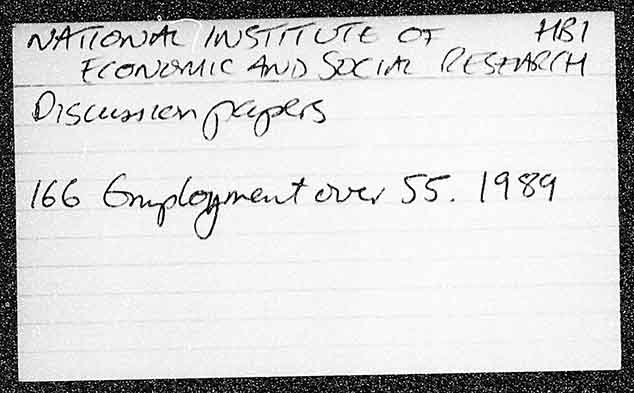 NATIONAL INSTITUTE OF HB1
ECONOMIC AND SOCIAL RESEARCH
Discussion papers
166 Employment over 55. 1989